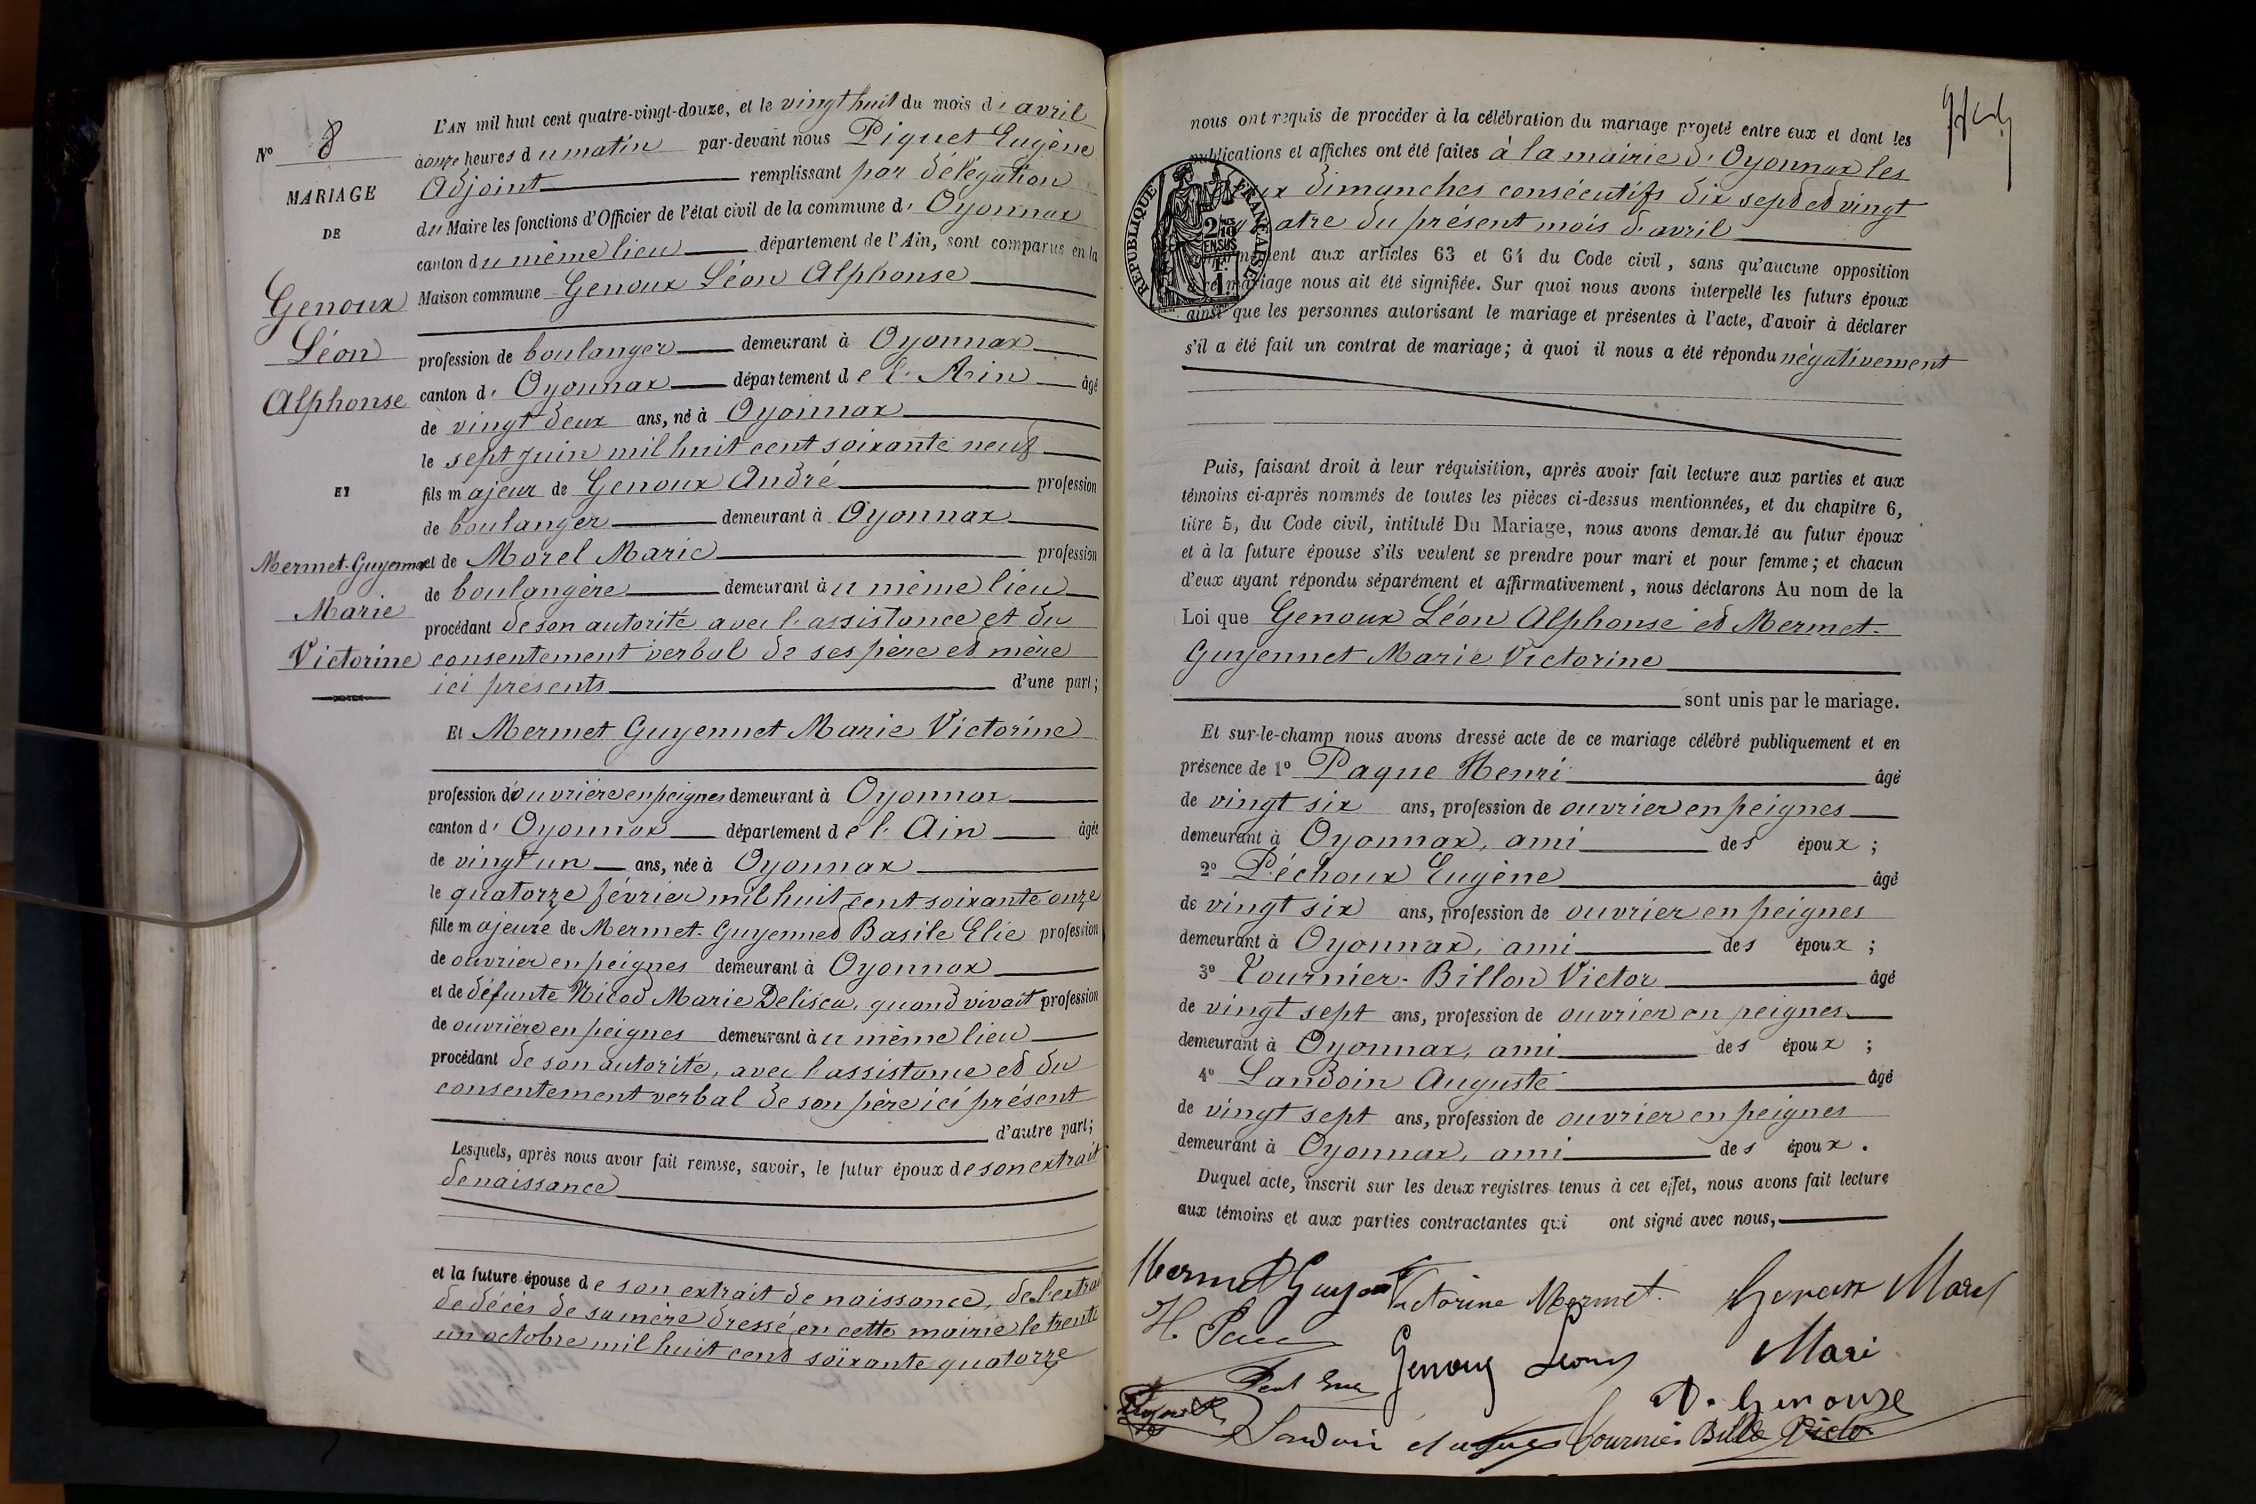 N° 8
MARIAGE
DE
Genoux
Léon
Alphonse
ET
Mermet-Guyennet
Marie
Victorine
L'AN mil huit cent quatre-vingt-douze, et le vingt huit du mois d' avril
à onze heures du matin par-devant nous Piquet Eugène
Adjoint remplissant par délégation
du Maire les fonctions d'Officier de l'état civil de la commune d' Oyonnax
canton du même lieu département de l'Ain, sont comparus en la
Maison commune Genoux Léon Alphonse
profession de boulanger demeurant à Oyonnax
canton d' Oyonnax département de l' Ain âgé
de vingt deux ans, né à Oyonnax
le sept juin mil huit cent soixante neuf
fils majeur de Genoux André profession
de boulanger demeurant à Oyonnax
et de Morel Marie profession
de boulangère demeurant au même lieu
procédant de son autorité avec l'assistance et du
consentement verbal de ses père et mère
ici présents d'une part;
Et Mermet Guyennet Marie Victorine
profession d'ouvrière en peignes demeurant à Oyonnax
canton d' Oyonnax département de l' Ain âgée
de vingt un ans, née à Oyonnax
le quatorze février mil huit cent soixante onze
fille majeure de Mermet-Guyennet Basile Elie profession
de ouvrier en peignes demeurant à Oyonnax
et de défunte Nicod Marie Delisca, quand vivait profession
de ouvrière en peignes demeurant au même lieu
procédant de son autorité, avec l'assistance et du
consentement verbal de son père ici présent
d'autre part;
Lesquels, après nous avoir fait remise, savoir, le futur époux de son extrait
de naissance
et la future épouse de son extrait de naissance, de l'extrait
de décès de sa mère dressé en cette mairie le trente
un octobre mil huit cent soixante quatorze
nous ont requis de procéder à la célébration du mariage projeté entre eux et dont les
publications et affiches ont été faites à la mairie d' Oyonnax les
deux dimanches consécutifs dix sept et vingt
quatre du présent mois d'avril
RÉPUBLIQUE FRANÇAISE
2/10 EN SUS
conformément aux articles 63 et 64 du Code civil, sans qu'aucune opposition
à ce mariage nous ait été signifiée. Sur quoi nous avons interpellé les futurs époux
ainsi que les personnes autorisant le mariage et présentes à l'acte, d'avoir à déclarer
s'il a été fait un contrat de mariage; à quoi il nous a été répondu négativement
Puis, faisant droit à leur réquisition, après avoir fait lecture aux parties et aux
témoins ci-après nommés de toutes les pièces ci-dessus mentionnées, et du chapitre 6,
titre 5, du Code civil, intitulé Du Mariage, nous avons demandé au futur époux
et à la future épouse s'ils veulent se prendre pour mari et pour femme; et chacun
d'eux ayant répondu séparément et affirmativement, nous déclarons Au nom de la
Loi que Genoux Léon Alphonse et Mermet-
Guyennet Marie Victorine
sont unis par le mariage.
Et sur-le-champ nous avons dressé acte de ce mariage célébré publiquement et en
présence de 1° Paque Henri âgé
de vingt six ans, profession de ouvrier en peignes
demeurant à Oyonnax, ami des époux;
2° Péchoux Eugène âgé
de vingt six ans, profession de ouvrier en peignes
demeurant à Oyonnax, ami des époux;
3° Tournier-Billon Victor âgé
de vingt sept ans, profession de ouvrier en peignes
demeurant à Oyonnax, ami des époux;
4° Landoin Auguste âgé
de vingt sept ans, profession de ouvrier en peignes
demeurant à Oyonnax, ami des époux.
Duquel acte, inscrit sur les deux registres tenus à cet effet, nous avons fait lecture
aux témoins et aux parties contractantes qui ont signé avec nous,
Mermet Guyennet Victorine Mermet Genoux Morel
Marie
H. Paque
Genoux Léon
A. Genoux
Landoin Auguste Tournier Billon Victor